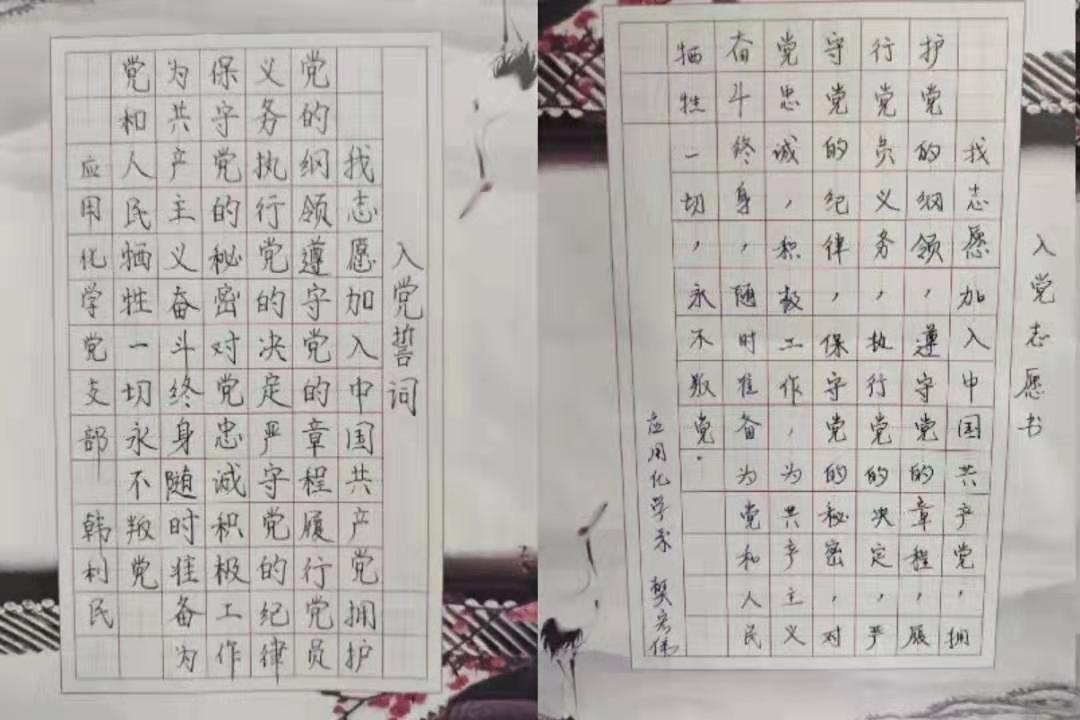 入党誓词
我志愿加入中国共产党拥护
党的纲领遵守党的章程履行党员
义务执行党的决定严守党的纪律
保守党的秘密对党忠诚积极工作
为共产主义奋斗终身随时准备为
党和人民牺牲一切永不叛党
应用化学党支部 韩利民
入党志愿书
我志愿加入中国共产党，拥
护党的纲领，遵守党的章程，履
行党员义务，执行党的决定，严
守党的纪律，保守党的秘密，对
党忠诚，积极工作，为共产主义
奋斗终身，随时准备为党和人民
牺牲一切，永不叛党。
应用化学系 樊宏伟